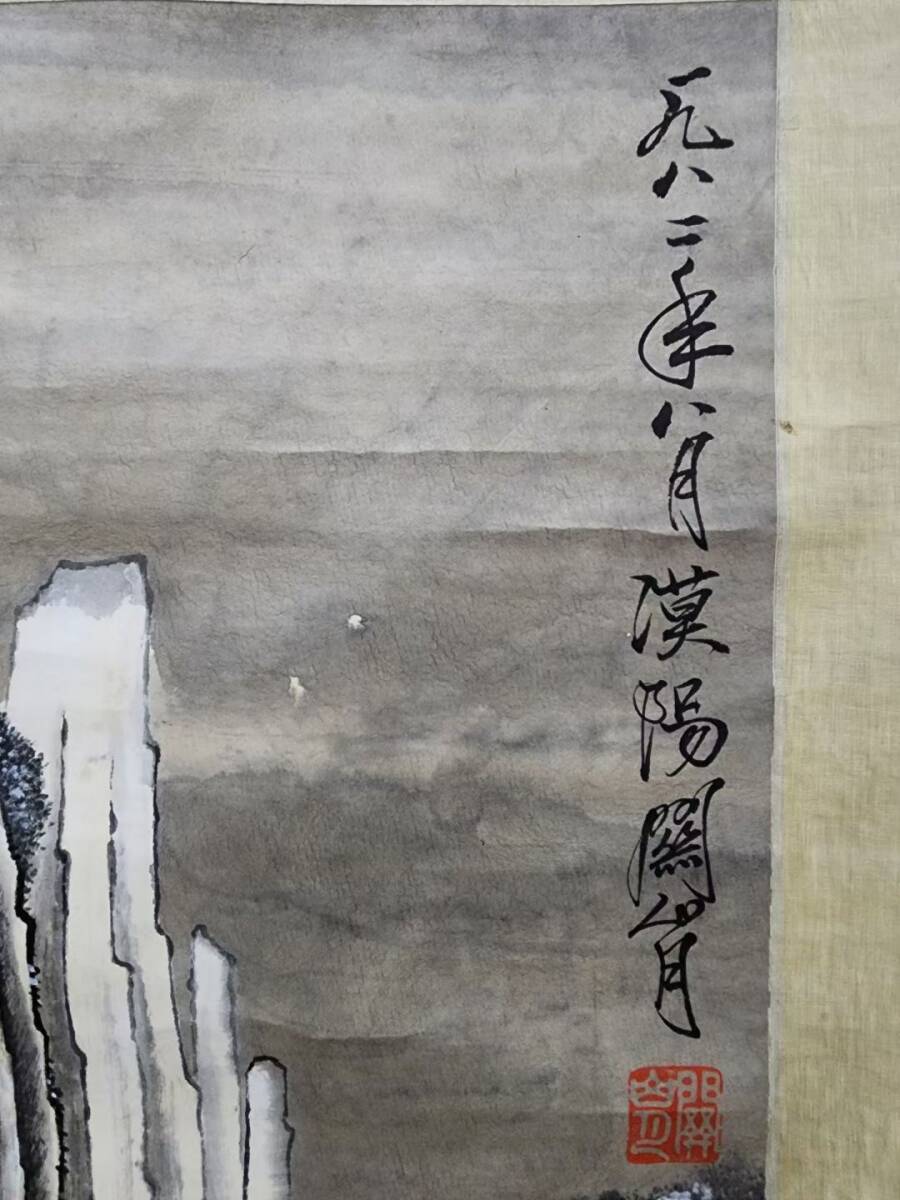 一九八二年八月漠陽關山月
關山月